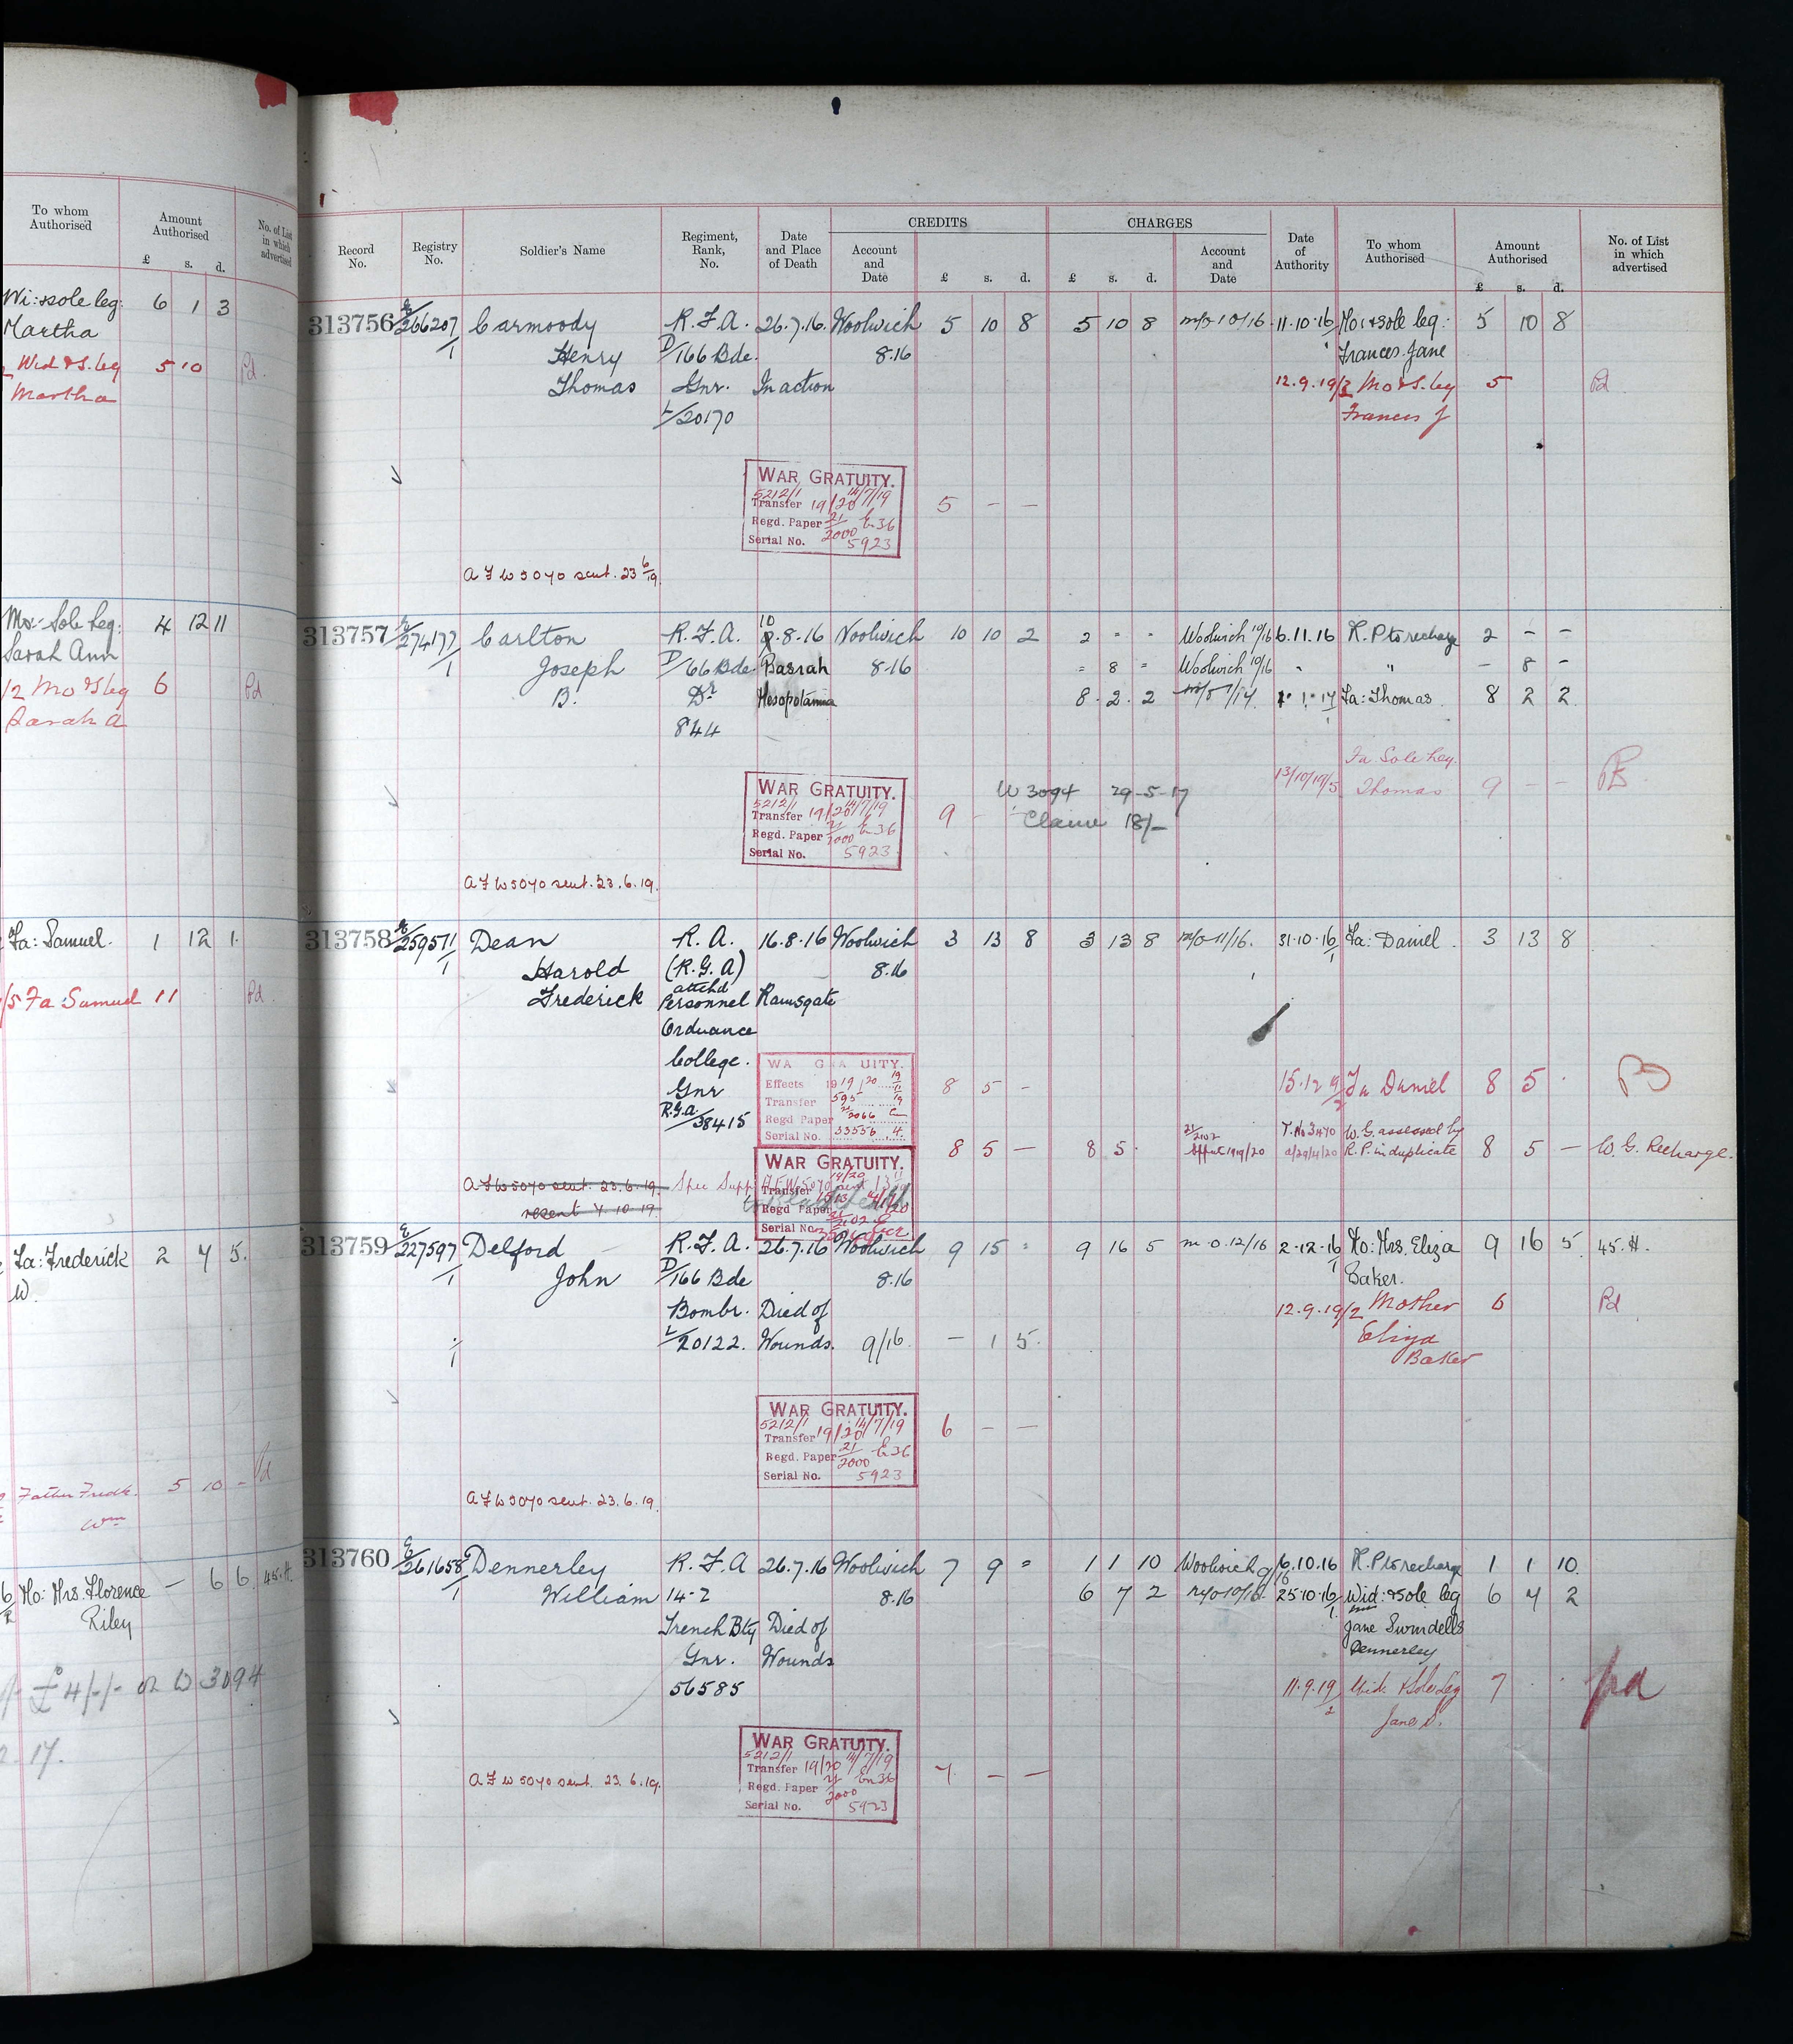 To whom Authorised
Amount Authorised
£ s. d.
No. of List in which advertised
Wi: & sole leg: 6 1 3
Martha
Wid & S. leg 5 10 Pd.
Martha
Mo: Sole Leg: 4 12 11
Sarah Ann
/2 Mo & S leg 6 Pd
Sarah A
Fa: Samuel. 1 12 1.
/5 Fa: Samuel 11 Pd.
Fa: Frederick 2 7 5.
W.
Father Fredk. 5 10 -
Wm
Mo: Mrs. Florence - 6 6. 45.H.
Riley
£4/-/- on W 3094
17.
Record No.
Registry No.
Soldier's Name
Regiment, Rank, No.
Date and Place of Death
CREDITS
Account and Date
£ s. d.
CHARGES
£ s. d.
Account and Date
Date of Authority
To whom Authorised
Amount Authorised
£ s. d.
No. of List in which advertised
313756 E/266207/1 Carmoody R.F.A. 26.7.16. Woolwich 5 10 8 5 10 8 m/o 10/16 11.10.16/1 Mo: & sole leg:- 5 10 8
Henry D/166 Bde. 8.16 Frances Jane
Thomas Gnr. In action 12.9.19/2 Mo & S. leg 5 Pd
L/20170 Frances J
WAR GRATUITY.
5212/1 14/7/19
Transfer 19/20
Regd. Paper 21/2000 E36
Serial No. 5923
5 - -
A F W 5070 sent. 23 6/19.
313757 E/274177/1 Carlton R.F.A. 10.8.16 Woolwich 10 10 2 2 " " Woolwich 10/16 6.11.16 R.P. to recharge 2 - -
Joseph D/66 Bde Basrah 8.16 = 8 = Woolwich 10/16 " " - 8 -
B. Dr Mesopotamia 8.2.2 m/o 1/17. 1.1.17/1 Fa: Thomas. 8 2 2.
844
Fa Sole Leg.
13/10/19/5 Thomas 9 - -
WAR GRATUITY.
5212/1 14/7/19
Transfer 19/20
Regd. Paper 21/2000 E36
Serial No. 5923
9 -
W 3094 29-5-17
Claim 18/-
A F W 5070 sent. 23.6.19.
313758 E/259571/1 Dean R.A. 16.8.16 Woolwich 3 13 8 3 13 8 m/o 11/16. 31.10.16/1 Fa: Daniel. 3 13 8
Harold (R.G.A) 8.16
Frederick attchd Personnel Ramsgate
Ordnance
College.
Gnr
R.G.A./38415
WA GRA UITY.
Effects 1919/20
Transfer 595
Regd Paper 2066
Serial No. 33556 4.
8 5 -
15.12.19/2 Fa Daniel 8 5 .
8 5 - 8 5 . 21/2102 Effects 1919/20 T.No 3470 d/29/4/20 W.G. assessed by R.P. in duplicate 8 5 - W.G. Recharge.
A F W 5070 sent. 23.6.19.
resent 7.10.19.
Spec Supp
WAR GRATUITY.
Transfer
Regd Paper
Serial No.
313759 E/227597/1 Delford R.F.A. 26.7.16 Woolwich 9 15 " 9 16 5 m.o.12/16 2.12.16/1 Mo: Mrs. Eliza 9 16 5 45.H.
John D/166 Bde 8.16 Baker.
Bombr. Died of 12.9.19/2 Mother 6 Pd
L/20122. Wounds. 9/16. - 1 5. Eliza
Baker
WAR GRATUITY.
5212/1 14/7/19
Transfer 19/20
Regd. Paper 21/2000 E36
Serial No. 5923
6 - -
A F W 5070 sent. 23.6.19.
313760 E/261658/1 Dennerley R.F.A 26.7.16 Woolwich 7 9 " 1 1 10 Woolwich 9/16 6.10.16 R.P. to recharge 1 1 10.
William 14-2 8.16 6 7 2 m/o 10/16. 25.10.16/1 Wid: & sole leg 6 7 2
Trench Bty Died of Jane Swindells
Gnr. Wounds Dennerley
56585 11.9.19/2 Wid. & Sole Leg 7 . . pd
Jane S.
WAR GRATUITY.
5212/1 14/7/19
Transfer 19/20
Regd. Paper 21/2000 E36
Serial No. 5923
7. - -
A F W 5070 sent. 23.6.19.